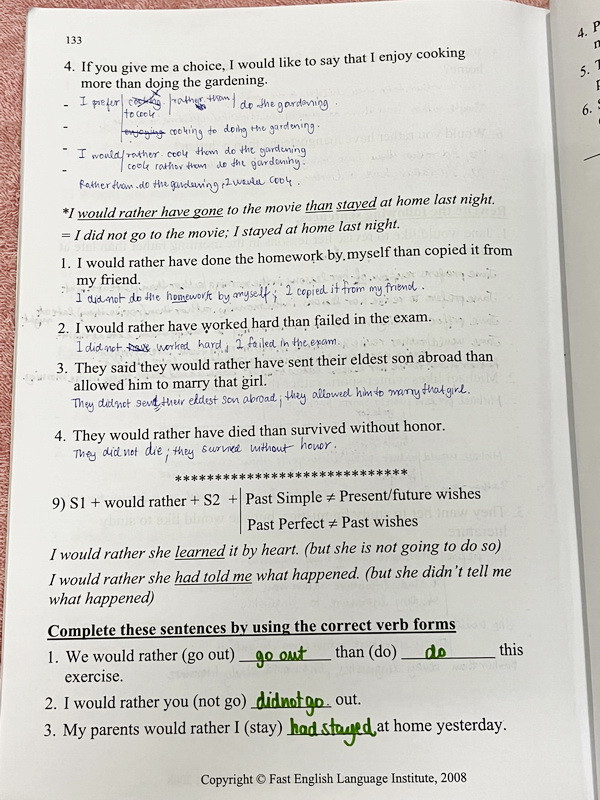 133
4. If you give me a choice, I would like to say that I enjoy cooking
more than doing the gardening.
- I prefer cooking rather than do the gardening.
to cook
- enjoying cooking to doing the gardening.
- I would rather cook than do the gardening
- cook rather than do the gardening.
Rather than do the gardening, I would cook.
*I would rather have gone to the movie than stayed at home last night.
= I did not go to the movie; I stayed at home last night.
1. I would rather have done the homework by myself than copied it from
my friend.
I did not do the homework by myself; I copied it from my friend.
2. I would rather have worked hard than failed in the exam.
I did not have worked hard; I failed in the exam.
3. They said they would rather have sent their eldest son abroad than
allowed him to marry that girl.
They did not send their eldest son abroad; they allowed him to marry that girl.
4. They would rather have died than survived without honor.
They did not die; they survived without honor.
*****************************
9) S1 + would rather + S2 + Past Simple ≠ Present/future wishes
Past Perfect ≠ Past wishes
I would rather she learned it by heart. (but she is not going to do so)
I would rather she had told me what happened. (but she didn't tell me
what happened)
Complete these sentences by using the correct verb forms
1. We would rather (go out) go out than (do) do this
exercise.
2. I would rather you (not go) did not go out.
3. My parents would rather I (stay) had stayed at home yesterday.
Copyright © Fast English Language Institute, 2008
4. P
5. T
6. S